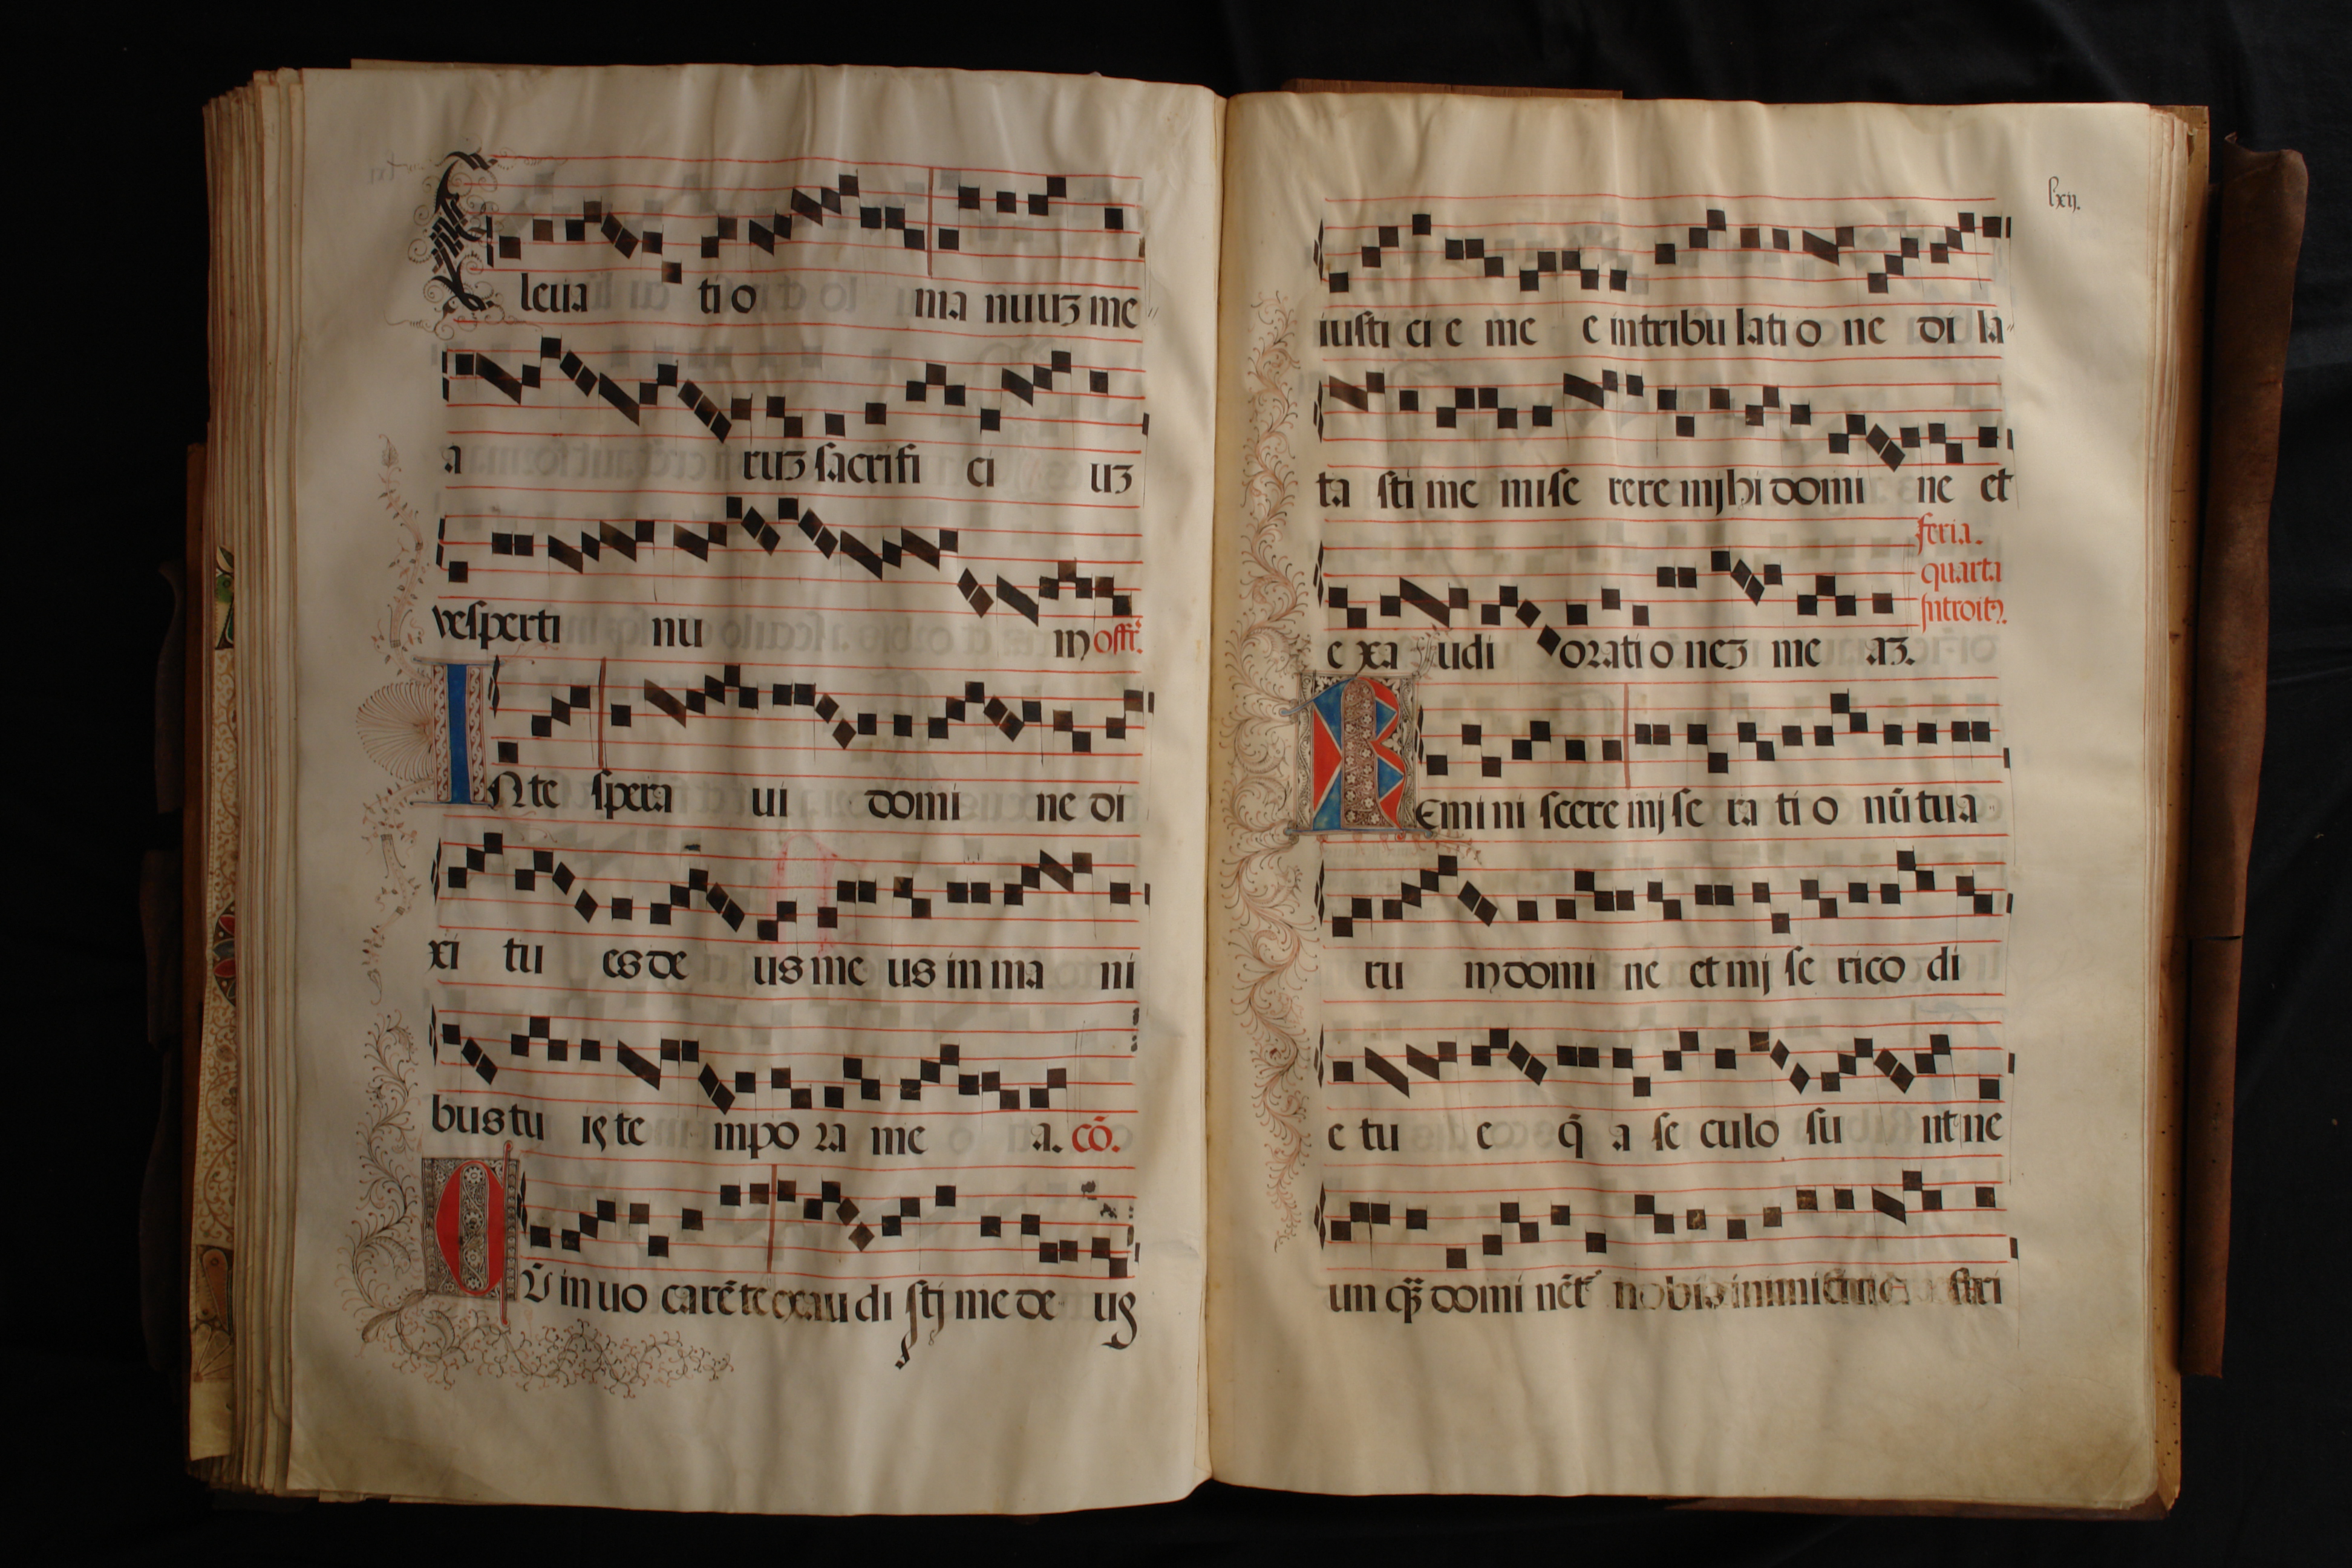 Eleua tio ma nuuʒ me
a ruʒ sacrifi ci uʒ
vesperti nu m offr̄.
INte spera ui domi ne di
xi tu es de us me us in ma ni
bus tu is te mpo ra me a. cō.
Cū in uo carē te exau di stj me de us
lxij.
iusti ci e me e in tribu lati o ne di la
ta sti me mise rere mjhi domi ne et
feria.
e xa udi orati o neʒ me aʒ.
quarta
Introitꝰ.
REmi ni scere mj se ra ti o nū tua
ru m domi ne et mj se rico di
e tu e q̄ a se culo su nt ne
un qȝ̄ domi nēt nobis inimici nostri